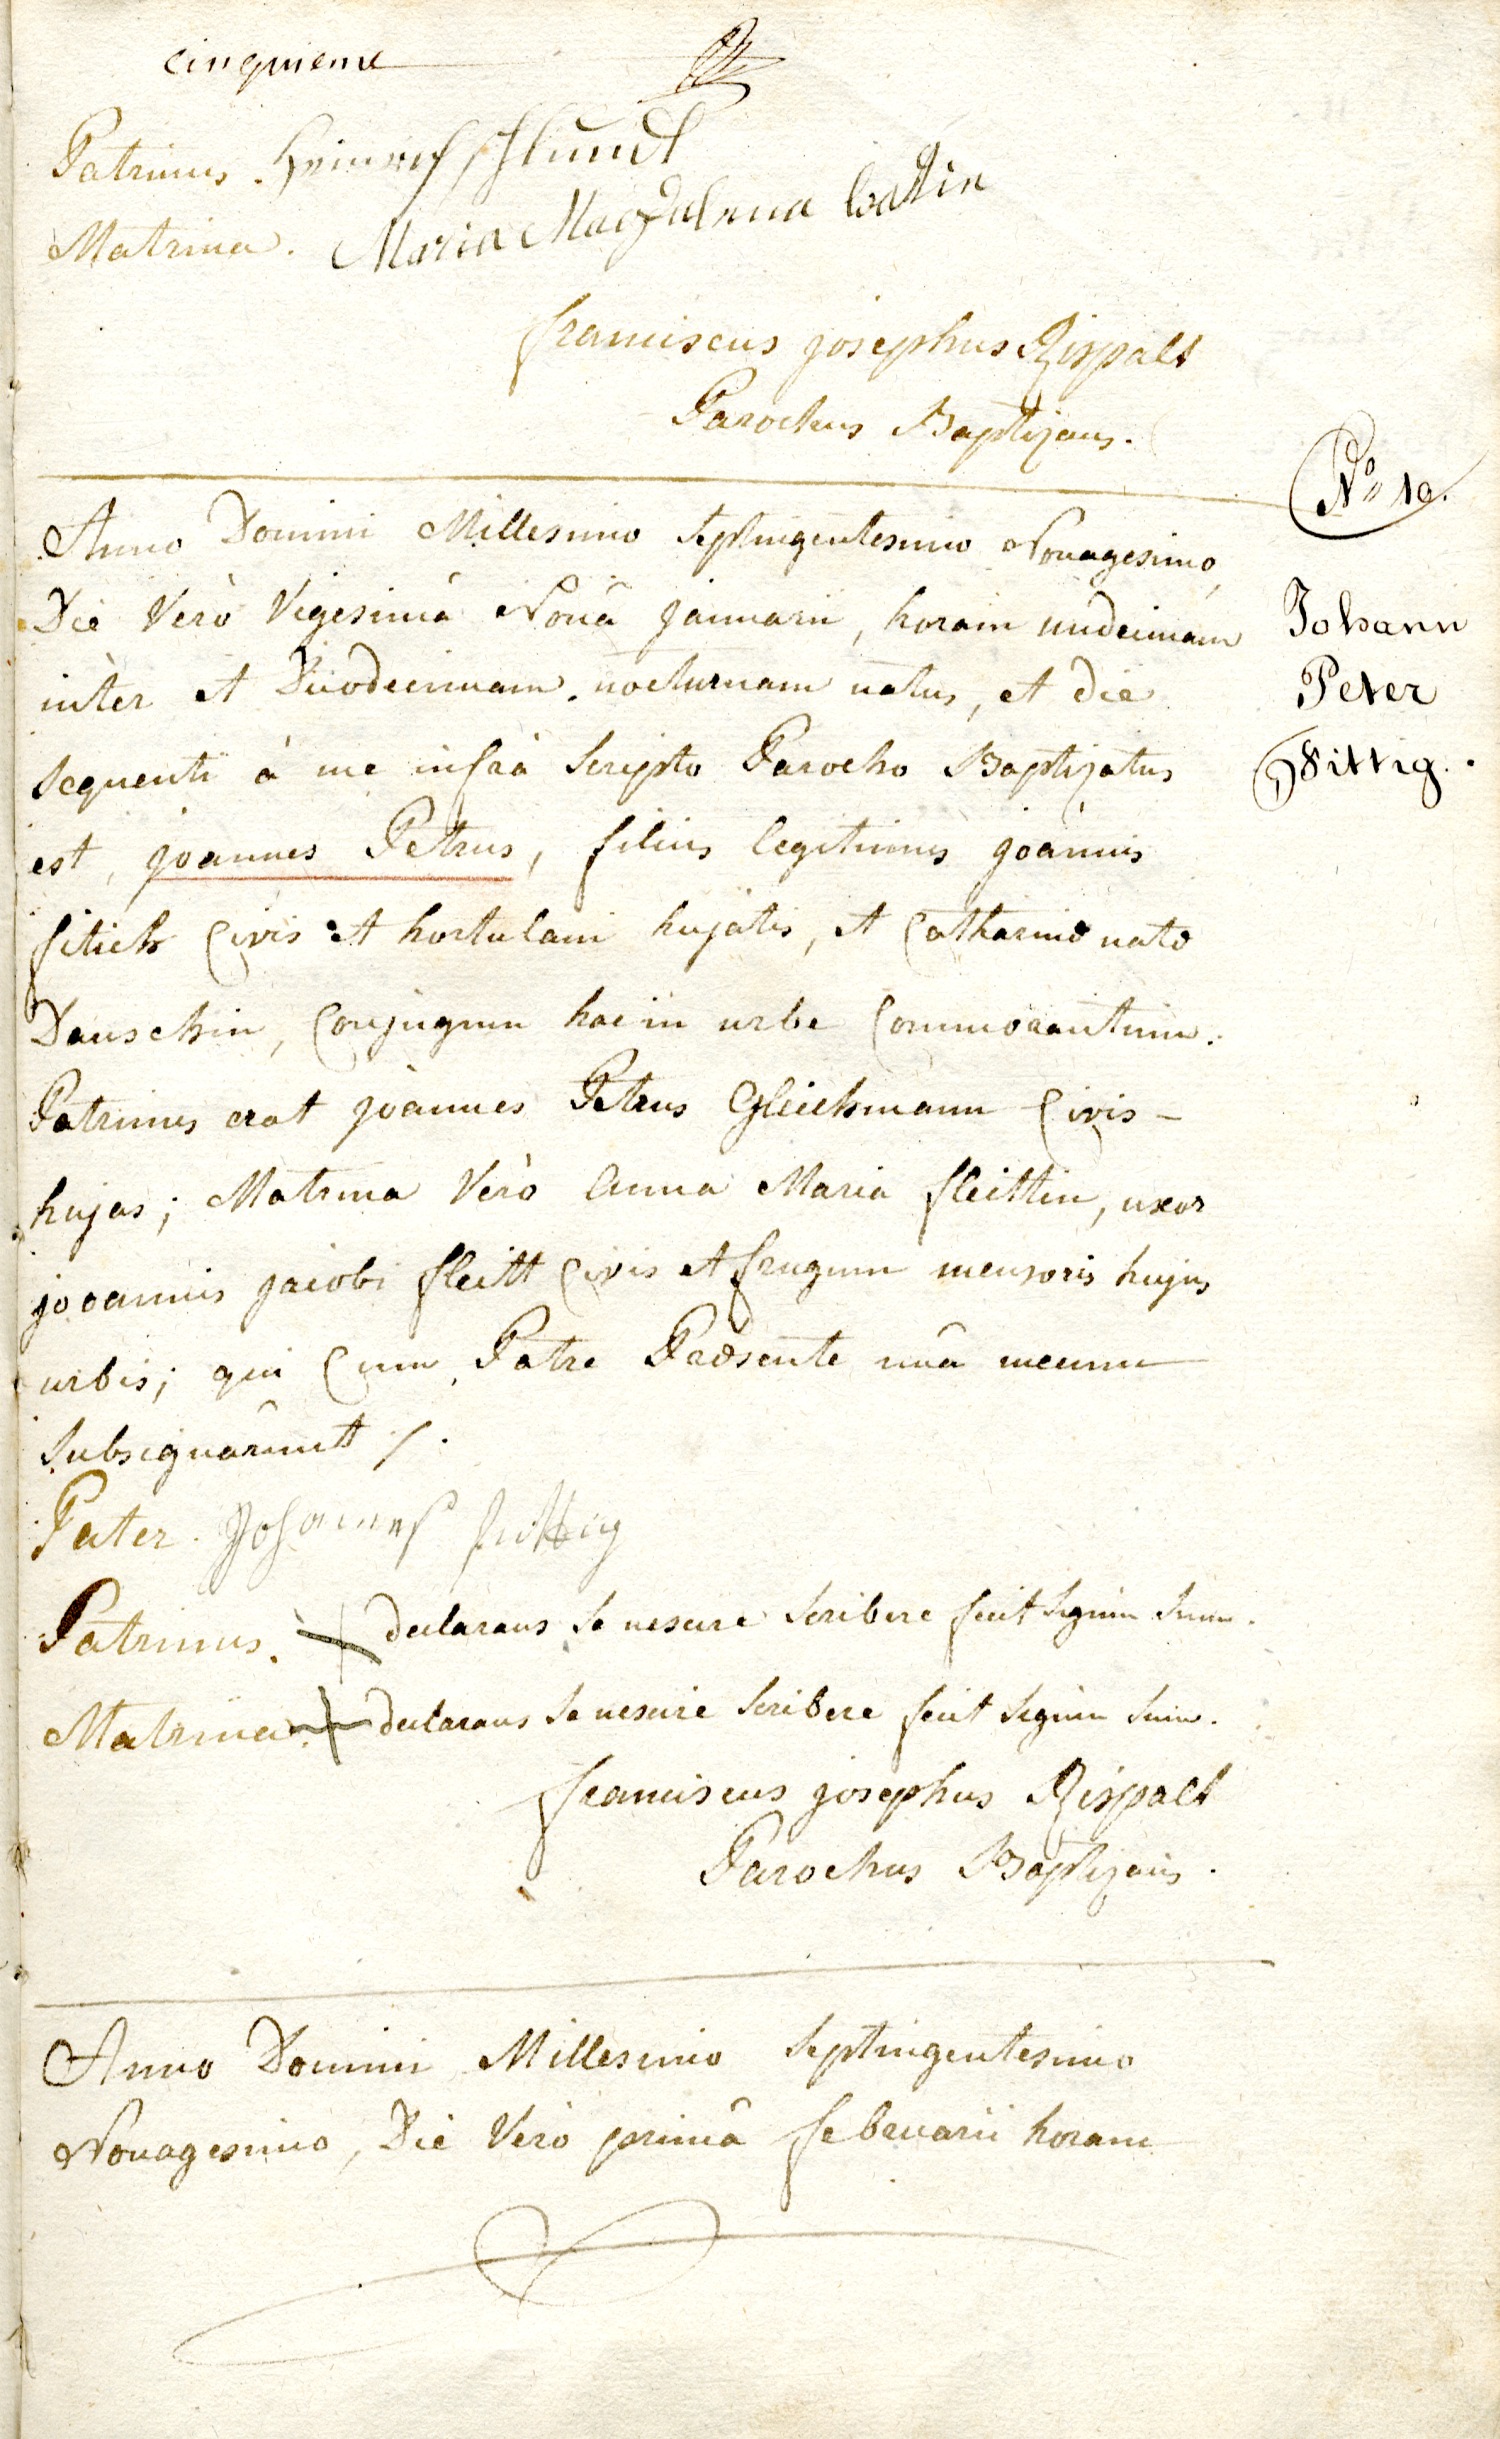 cinquieme
Patrinus. Heinrich Schlundt
Matrina. Maria Magdalena
franciscus josephus Rispalt
Parochus Baptizans.
Nº 10.
Anno Domini Millesimo Septingentesimo Nonagesimo,
Die Verò Vigesimâ Nonâ januarii, horam undecimam
intèr et Duodecimam nocturnam natus, et die
Sequenti à me infrà Scripto Parocho Baptizatus
est, joannes Petrus, filius legitimus joannis
fitich Civis et hortulani hujatis, et Catharinæ natæ
Dauschin, Conjugum hac in urbe Commorantium.
Patrinus erat joannes Petrus Gleichmann Civis-
hujas; Matrina Verò Anna Maria fleittin, uxor
jooannis jacobi fleitt Civis et frugum mensoris hujus
urbis; qui Cum Patre Præsente unâ mecum
Subsignârunt /.
Pater. Johannes fittig
Patrinus. + declarans Se nescire Scribere fecit Signum Suum.
Matrina. + declarans Se nescire Scribere fecit Signum Suum.
franciscus josephus Rispalt
Parochus Baptizans.
Johann
Peter
Vittig.
Anno Domini Millesimo Septingentesimo
Nonagesimo, Die Verò primâ februarii horam